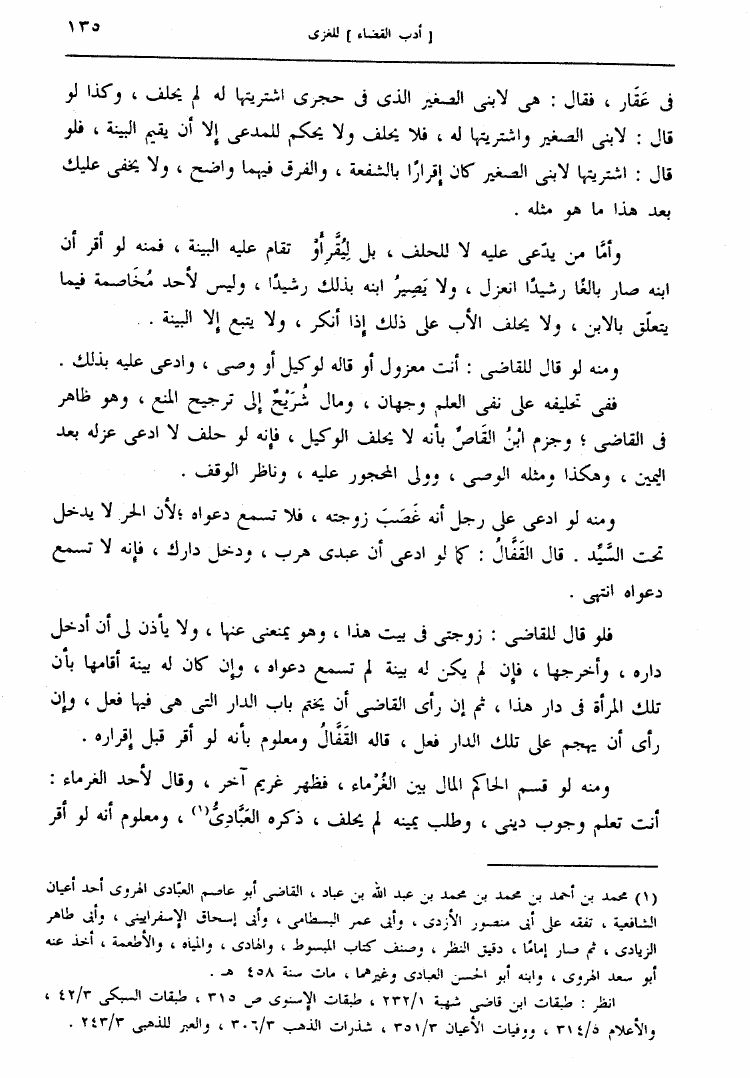 [ أدب القضاء ] للغزى
١٣٥
فى عَقَار ، فقال : هى لابنى الصغير الذى فى حجرى اشتريتها له لم يحلف ، وكذا لو
قال : لابنى الصغير واشتريتها له ، فلا يحلف ولا يحكم للمدعى إلا أن يقيم البينة ، فلو
قال : اشتريتها لابنى الصغير كان إقرارًا بالشفعة ، والفرق فيهما واضح ، ولا يخفى عليك
بعد هذا ما هو مثله .
وأمَّا من يدّعى عليه لا للحلف ، بل لِيُقَّر أَوْ تقام عليه البينة ، فمنه لو أقر أن
ابنه صار بالغًا رشيدًا انعزل ، ولا يَصِيرُ ابنه بذلك رشيدًا ، وليس لأحد مُخَاصمة فيما
يتعلّق بالابن ، ولا يحلف الأب على ذلك إذا أنكر ، ولا يتبع إلا البينة .
ومنه لو قال للقاضى : أنت معزول أو قاله لوكيل أو وصى ، وادعى عليه بذلك .
ففى تحليفه على نفى العلم وجهان ، ومال شُرَيْحٌ إلى ترجيح المنع ، وهو ظاهر
فى القاضى ؛ وجزم ابْنُ القَاصٌ بأنه لا يحلف الوكيل ، فإنه لو حلف لا ادعى عزله بعد
اليمين ، وهكذا ومثله الوصى ، وولى المحجور عليه ، وناظر الوقف .
ومنه لو ادعى على رجل أنه غَصَبَ زوجته ، فلا تسمع دعواه ؛لأن الحر لا يدخل
تحت السَّيِّد . قال القَفَّالُ : كما لو ادعى أن عبدى هرب ، ودخل دارك ، فإنه لا تسمع
دعواه انتهى .
فلو قال للقاضى : زوجتى فى بيت هذا ، وهو يمنعنى عنها ، ولا يأذن لى أن أدخل
داره ، وأخرجها ، فإن لم يكن له بينة لم تسمع دعواه ، وإن كان له بينة أقامها بأن
تلك المرأة فى دار هذا ، ثم إن رأى القاضى أن يختم باب الدار التى هى فيها فعل ، وإن
رأى أن يهجم على تلك الدار فعل ، قاله القَفَّالُ ومعلوم بأنه لو أقر قبل إقراره .
ومنه لو قسم الحاكم المال بين الغُرْماء ، فظهر غريم آخر ، وقال لأحد الغرماء :
أنت تعلم وجوب دينى ، وطلب يمينه لم يحلف ، ذكره العَبَّادِىُّ(١) ، ومعلوم أنه لو أقر
(١) محمد بن أحمد بن محمد بن محمد بن عبد الله بن عباد ، القاضى أبو عاصم العبّادى الهروى أحد أعيان
الشافعية ، تفقه على أبى منصور الأزدى ، وأبى عمر البسطامى ، وأبى إسحاق الإسفرايينى ، وأبى طاهر
الزيادى ، ثم صار إمامًا ، دقيق النظر ، وصنف كتاب المبسوط ، والهادى ، والمياه ، والأطعمة ، أخذ عنه
أبو سعد الهروى ، وابنه أبو الحسن العبادى وغيرهما ، مات سنة ٤٥٨ هـ .
انظر : طبقات ابن قاضى شهبة ٢٣٢/١ ، طبقات الإسنوى ص ٣١٥ ، طبقات السبكى ٤٢/٣ ،
والأعلام ٣١٤/٥ ، ووفيات الأعيان ٣٥١/٣ ، شذرات الذهب ٣٠٦/٣ ، والعبر للذهبى ٢٤٣/٣ .